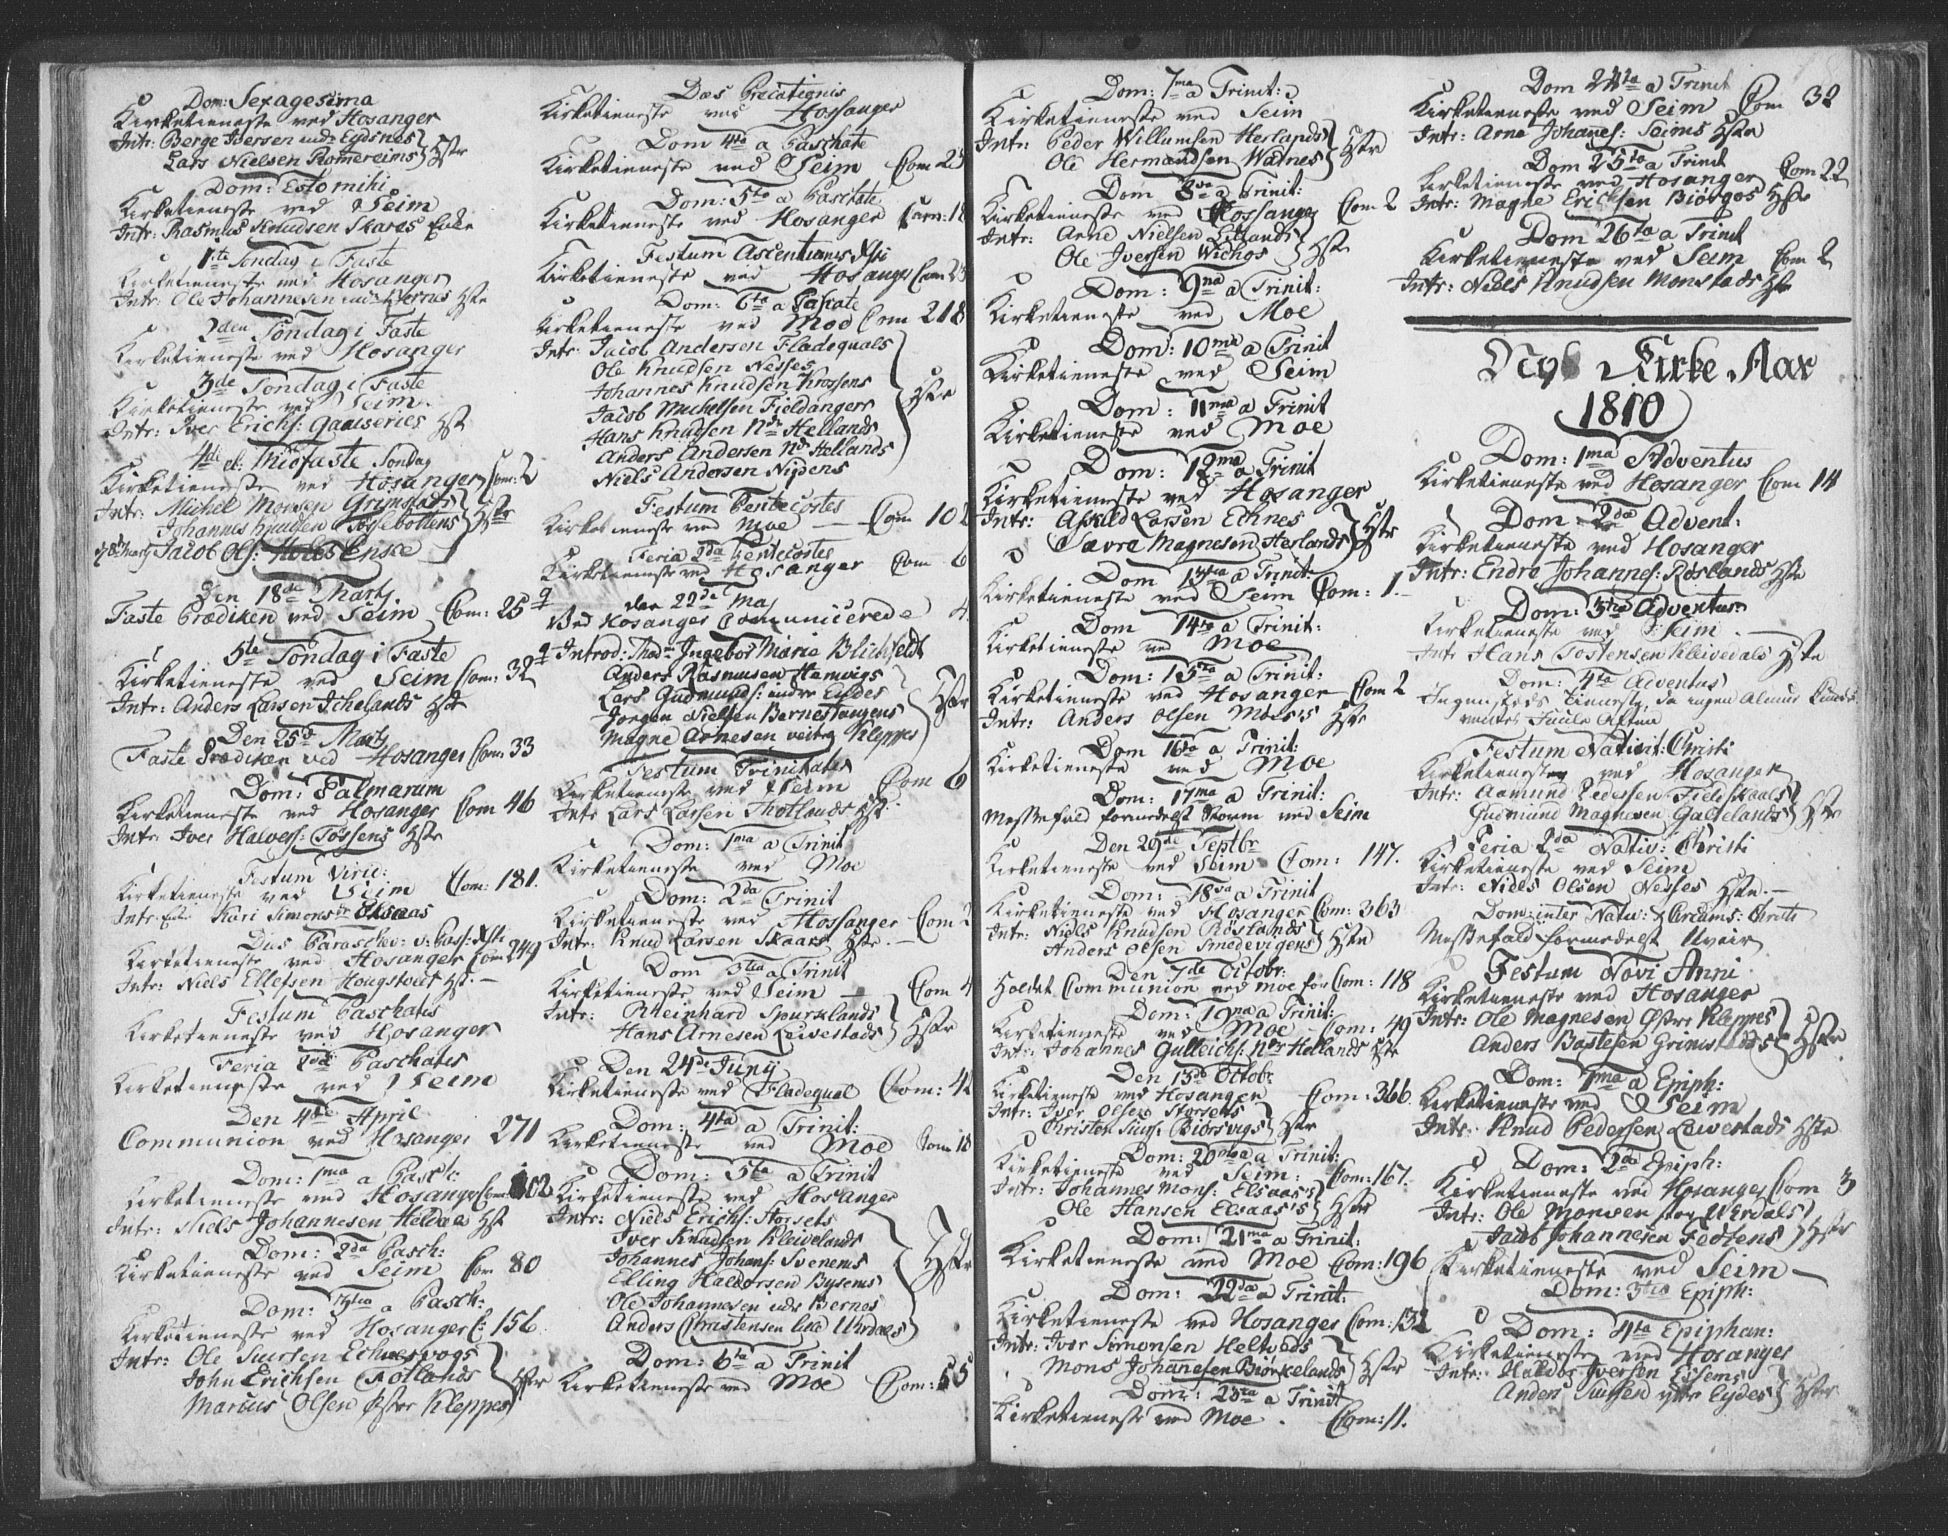 Dom: Sexagesima
Kirketieneste ved Hosanger
Intr: Berge Iversen indr Eydsnes
Lars Nielsen Romereims Hstr
Dom: Estomihi
Kirketieneste ved Seim
Intr: Rasmus Knudsen Skares Enke
1te Søndag i Faste
Kirketieneste ved Hosanger
Intr: Ole Johannesen Hste
2den Søndag i Faste
Kirketieneste ved Hosanger
3de Søndag i Faste
Kirketieneste ved Seim.
Intr: Iver Erichs: Hst
4de el: Midfaste Søndag
Kirketieneste ved Hosanger Com: 2
Intr: Michel Monsen Grimstads
Johannes Knudsen Hstr
Jacob Ols: Enke
Den 18de Martj
Faste Prædiken ved Seim Com: 25
5te Søndag i Faste
Kirketieneste ved Seim Com: 32
Intr: Anders Larsen Ichelands Hst
Den 25de Martj
Faste Prædiken ved Hosanger Com: 33
Dom: Palmarum
Kirketieneste ved Hosanger Com 46
Intr: Iver Halvors: Tossens Hste
Festum Virid:
Kirketieneste ved Seim Com: 181.
Intr. Kari Simonsdr Elsaas
Dies Parascev: v: Pass: Xsti
Kirketieneste ved Hosanger Com 249
Intr: Niels Ellefsen Hougstvedt Hst. –
Festum Paschatis
Kirketieneste ved Hosanger
Feria 2da Paschatis
Kirketieneste ved Seim
Den 4de April
Communion ved Hosanger 271
Dom: 1ma a Pasch:
Kirketieneste ved Hosanger Com: 102
Intr: Niels Johannesen Heldals Hst
Dom: 2da Pasch:
Kirketieneste ved Seim Com 80
Dom: 3tia a Pasch:
Kirketieneste ved Hosanger C: 156
Intr: Ole Siursen
John Erichsen Hstr
Marcus Olsen Østre Kleppes
Dies Precationis
Kirketieneste ved Hossanger
Dom 4ta a Paschate
Kirketieneste ved Seim Com 25
Dom: 5ta a Paschate
Kirketieneste ved Hosanger Com: 18
Festum Ascentionis Xsti
Kirketieneste ved Hosanger Com: 23
Dom: 6ta a Paschate
Kirketieneste ved Moe Com 218
Intr: Jacob Andersen Fladequals
Ole Knudsen Nesses
Johannes Knudsen Krossens
Jacob Michelsen Fieldangerr Hstr
Hans Knudsen Ndr Hellands
Anders Andersen Ndr Hellands
Niels Andersen Nydens
Festum Pentecostes
Kirketieneste ved Moe – Com 102
Feria 2da Pentecostes
Kirketieneste ved Hosanger Com 6
den 22de Maj
Ved Hosanger Communicerede 4.
Introd: Madm Ingebor Marie Blichfeldt
Anders Rasmussen Hamvigs
Lars Gudmunds: indre Eides
Jorgen Nielsen Bernestangens Hstr
Magne Arnesen Kleppes
Festum Trinitatis
Kirketieneste ved Seim Com 6
Intr Lars Larsen Totlands Hst.
Dom: 1ma a Trinit
Kirketieneste ved Moe
Dom: 2da Trinit
Kirketieneste ved Hossanger Com 2
Intr: Knud Larsen Skaars Hste. –
Dom 3tia a Trinit
Kirketieneste ved Seim – Com 4
Intr: Rheinhard Spurklands
Hans Arnesen Leivestads Hstr
Den 24de Junij
Kirketieneste ved Fladequal Com: 42
Dom: 4ta a Trinit:
Kirketieneste ved Moe Com 18
Dom: 5ta a Trinit
Kirketieneste ved Hosanger
Intr: Niels Erichs: Storsets
Iver Knudsen Kleivelands
Johannes Johans: Svenems
Elling Haldorsen Bysems Hstr
Ole Johannesen Bernes
Anders Christensen lille Urdals
Dom: 6ta a Trinit
Kirketieneste ved Moe Com: 55
Dom: 7ma a Trinit:
Kirketieneste ved Seim
Intr: Peder Willumsen Herlands
Ole Hermandsen Watnes Hstr
Dom 8va a Trinit:
Kirketieneste ved Hossanger Com 2
Intr: Arne Nielsen Litlands
Ole Iversen Wichos Hstr
Dom: 9na a Trinit:
Kirketieneste ved Moe
Dom: 10ma a Trinit
Kirketieneste ved Seim
Dom: 11ma a Trinit
Kirketieneste ved Moe
Dom: 12ma a Trinit
Kirketieneste ved Hosanger
Intr: Askild Larsen Echnes
Sævre Magnesen Herlands Hstr
Dom 13tia a Trinit:
Kirketieneste ved Seim Com: 1.
Dom 14ta a Trinit:
Kirketieneste ved Moe
Dom: 15ta a Trinit:
Kirketieneste ved Hosanger Com 2
Intr: Anders Olsen Moes's Hstr
Dom 16ta a Trinit:
Kirketieneste ved Moe
Dom: 17ma a Trinit:
Messefald formedelst Storm ved Seim
Den 29de Septbr
Kirketieneste ved Seim Com: 147.
Dom: 18va a Trinit
Kirketieneste ved Hosanger Com: 363
Intr: Niels Knudsen Röslands
Anders Olsen Smedevigens Hstr
Den 7de Octobr:
Holdet Communion ved Moe for Com: 118
Dom: 19na a Trinit:
Kirketieneste ved Moe Com: 49
Intr: Johannes Gulleichs: Ndr Hellands Hste
Den 13de Octobr:
Kirketieneste ved Hosanger Com: 366.
Intr: Iver Olsen Storsets
Christen Siurs: Biörsvigs Hstr
Dom: 20ma a Trinit:
Kirketieneste ved Seim: Com: 167.
Intr: Johannes Mons: Elsaas's
Ole Hansen Elsaas's Hstr
Dom: 21ma a Trinit:
Kirketieneste ved Moe Com: 196
Dom: 22da a Trinit:
Kirketieneste ved Hosanger Com: 132
Intr: Iver Simonsen Heltveds
Mons Johanesen Biörkelands Hstr
Dom: 23tia a Trinit
Kirketieneste ved Moe. Com: 11.
Dom 24ta a Trinit
Kirketieneste ved Seim Com 32
Intr: Arne Johanes: Seims Hste
Dom 25ta a Trinit
Kirketieneste ved Hosanger Com 22
Intr: Magne Erichsen Biörgos Hste
Dom 26ta a Trinit
Kirketieneste ved Seim Com 2
Intr: Niels Knudsen Monstads Hst
Nyt Kirke Aar
1810
Dom: 1ma Adventus
Kirketieneste ved Hosanger Com 14
Dom: 2da Advent:
Kirketieneste ved Hosanger
Intr: Endre Johannes: Röslands Hste
Dom: 3tia Adventus
Kirketieneste ved Seim. –
Intr Hans Tostensen Kleivedals Hste
Dom: 4ta Adventus
Ingensteds Tieneste, da ingen Almue
Juule Aften
Festum Nativit: Christi
Kirketienesten ved Hosanger
Intr: Aamund Pedersen Fieldskaals
Gudmund Magnesen Hstr
Feria 2da Nativ: Christi
Kirketieneste ved Seim
Intr: Niels Olsen Nesses Hste. –
Dom: inter Nativ: & Circums: Christi
Messefald formedelst Uveir
Festum Novi Anni
Kirketieneste ved Hosanger
Intr: Ole Magnesen Østre Kleppes
Anders Bastesen Grimstads Hstr
Dom: 1ma a Epiph:
Kirketieneste ved Seim
Intr: Knud Pedersen Leivestads Hste
Dom: 2da Epiph:
Kirketieneste ved Hosanger Com 3
Intr: Ole Monsen stor Urdals
Jacob Johannesen Fedsens Hstr
Kirketieneste ved Seim –
Dom: 3tia Epiph:
Dom: 4ta Epiphan:
Kirketieneste ved Hosanger
Intr: Haldor Iversen
Anders ytre Eydes Hstr